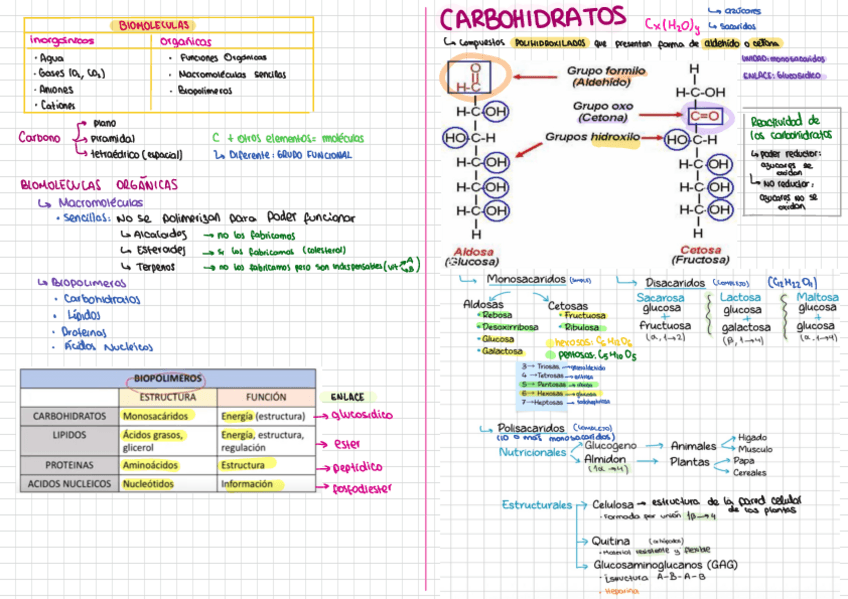 BIOMOLECULAS
inorgánicos
orgánicas
• Agua
• Gases (O₂, CO₂)
• Aniones
• Cationes
• Funciones Orgánicas
• Macromoléculas sencillas
• Biopolímeros
Carbono
→ plano
→ piramidal
→ tetraédrico (espacial)
C + otros elementos = moléculas
↳ Diferente: GRUPO FUNCIONAL
BIOMOLECULAS ORGÁNICAS
↳ Macromoléculas
• sencillas: NO se polimerizan para poder funcionar
↳ Alcaloides → no los fabricamos
↳ Esteroides → si los fabricamos (colesterol)
↳ Terpenos → no los fabricamos pero son indispensables (vit A B)
↳ Biopolimeros
• Carbohidratos
• Lípidos
• Proteinas
• Ácidos Nucleicos
BIOPOLIMEROS
ESTRUCTURA FUNCIÓN ENLACE
CARBOHIDRATOS Monosacáridos Energía (estructura) → glucosidico
LIPIDOS Ácidos grasos, glicerol Energía, estructura, regulación → ester
PROTEINAS Aminoácidos Estructura → peptídico
ACIDOS NUCLEICOS Nucleótidos Información → fosfodiester
CARBOHIDRATOS
Cx(H₂O)y
→ azúcares
→ sacaridos
↳ Compuestos POLIHIDROXILADOS que presentan forma de aldehído o cetona
UNIDAD: monosacaridos
ENLACE: Glucosidico
O
H-C
H-C-OH
HO-C-H
H-C-OH
H-C-OH
H-C-OH
H
Aldosa
(Glucosa)
Grupo formilo
(Aldehído)
Grupo oxo
(Cetona)
Grupos hidroxilo
H
H-C-OH
C=O
HO-C-H
H-C-OH
H-C-OH
H-C-OH
H
Cetosa
(Fructosa)
Reactividad de
los carbohidratos
↳ poder reductor:
azucares se
oxidan
↳ NO reductor:
azucares no se
oxidan
↳ Monosacaridos
Aldosas
• Rebosa
• Desoxirribosa
• Glucosa
• Galactosa
Cetosas
• Fructuosa
• Ribulosa
hexosas: C₆H₁₂O₆
pentosas: C₅H₁₀O₅
3 → Triosas
4 → Tetrosas
5 → Pentosas
6 → Hexosas → glucosa
7 → Heptosas
↳ Disacaridos (COMPLEJO) (C₁₂H₂₂O₁₁)
Sacarosa
glucosa
+
fructuosa
(α, 1→2)
Lactosa
glucosa
+
galactosa
(β, 1→4)
Maltosa
glucosa
+
glucosa
(α, 1→4)
↳ Polisacaridos (COMPLEJO)
(10 o más monosacaridos)
Nutricionales
Glucogeno → Animales
Higado
Musculo
Almidon → Plantas
(1α→4)
Papa
Cereales
Estructurales
Celulosa → estructura de la pared celular
de las plantas
• Formada por unión 1β→4
Quitina
• Material resistente y flexible
Glucosaminoglucanos (GAG)
• Estructura A-B-A-B
• Heparina